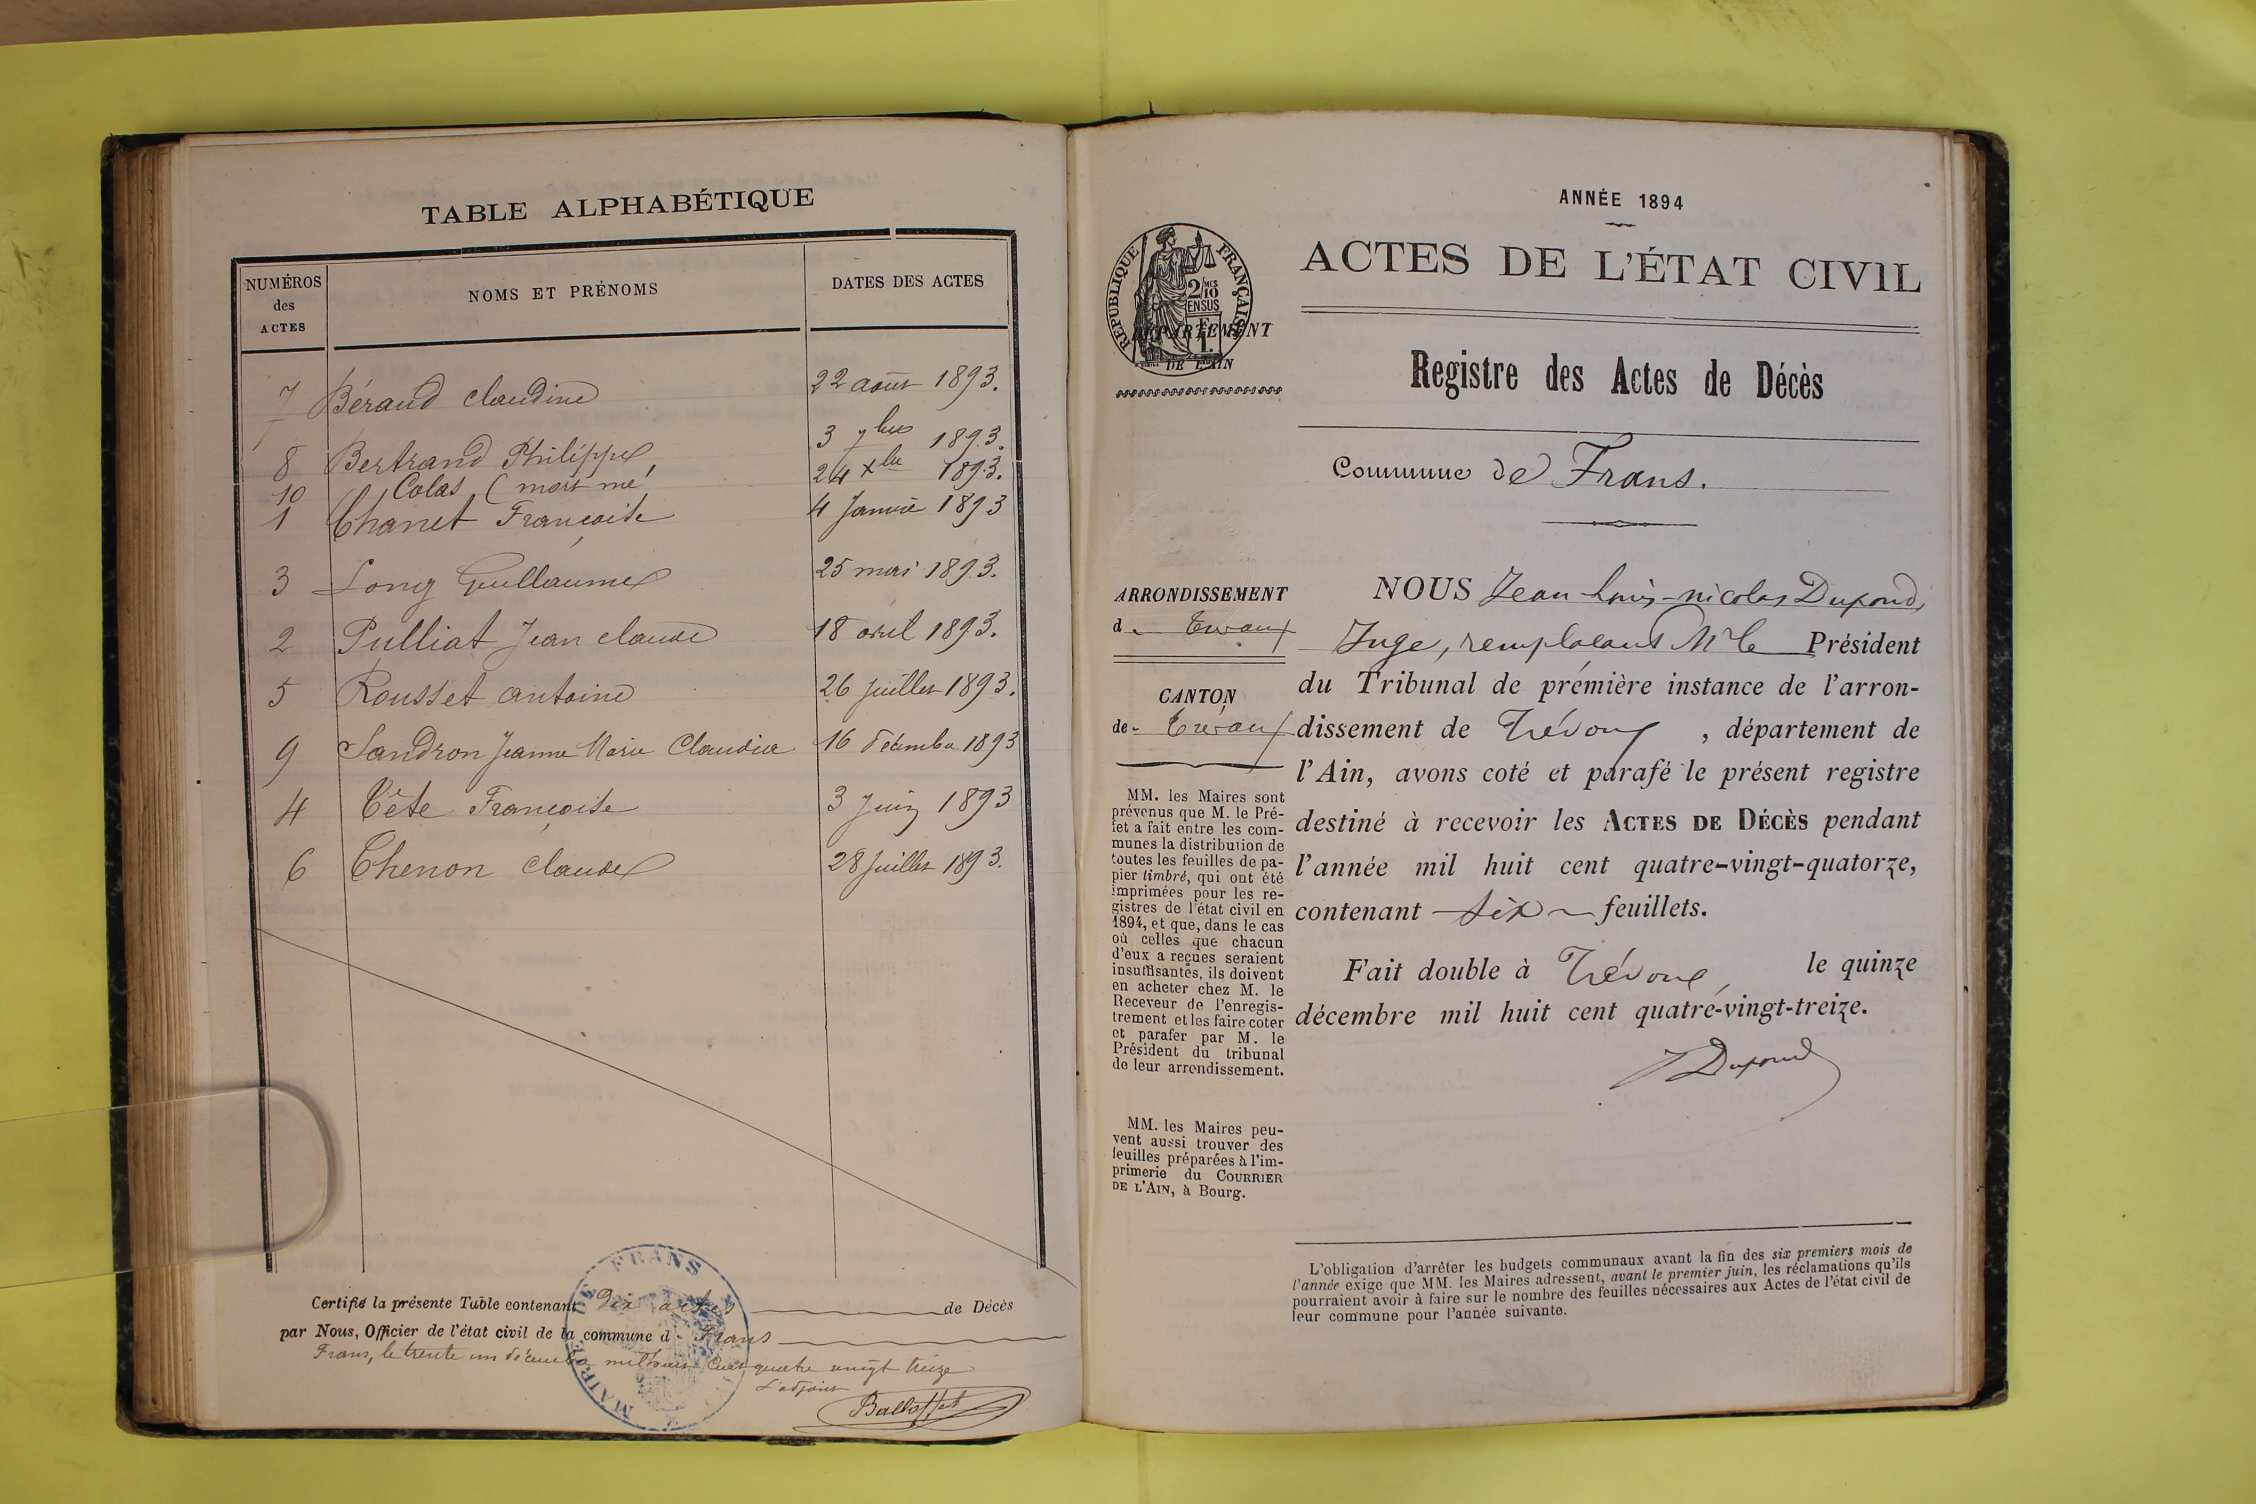 TABLE ALPHABÉTIQUE
NUMÉROS des ACTES NOMS ET PRÉNOMS DATES DES ACTES
7 Béraud Claudine 22 août 1893.
8 Bertrand Philippe, 3 7bre 1893.
10 Colas (mort né) 24 Xbre 1893.
1 Chanet Françoise 4 Janvier 1893
3 Long Guillaume 25 mai 1893.
2 Pulliat Jean Claude 18 avril 1893.
5 Rousset Antoine 26 Juillet 1893.
9 Sandron Jeanne Marie Claudia 16 décembre 1893
4 Tête Françoise 3 Juin 1893
6 Thenon Claude 28 Juillet 1893.
Certifié la présente Table contenant Dix actes de Décès
par Nous, Officier de l'état civil de la commune d Frans
Frans, le trente un décembre mil huit cent quatre vingt treize
L'adjoint
Balloffet
MAIRIE DE FRANS
ANNÉE 1894
ACTES DE L'ÉTAT CIVIL
RÉPUBLIQUE FRANÇAISE
2/10
MES
EN SUS
1 F.
DÉPARTEMENT
DE L'AIN
Registre des Actes de Décès
Commune de Frans.
ARRONDISSEMENT
d Trévoux
CANTON
de Trévoux
MM. les Maires sont
prévenus que M. le Pré-
fet a fait entre les com-
munes la distribution de
toutes les feuilles de pa-
pier timbré, qui ont été
imprimées pour les re-
gistres de l'état civil en
1894, et que, dans le cas
où celles que chacun
d'eux a reçues seraient
insuffisantes, ils doivent
en acheter chez M. le
Receveur de l'enregis-
trement et les faire coter
et parafer par M. le
Président du tribunal
de leur arrondissement.
MM. les Maires peu-
vent aussi trouver des
feuilles préparées à l'im-
primerie du COURRIER
DE L'AIN, à Bourg.
NOUS Jean-Louis-Nicolas Dupond,
Juge, remplaçant Mr le Président
du Tribunal de prémière instance de l'arron-
dissement de Trévoux, département de
l'Ain, avons coté et parafé le présent registre
destiné à recevoir les ACTES DE DÉCÈS pendant
l'année mil huit cent quatre-vingt-quatorze,
contenant six feuillets.
Fait double à Trévoux, le quinze
décembre mil huit cent quatre-vingt-treize.
Dupond
L'obligation d'arrêter les budgets communaux avant la fin des six premiers mois de
l'année exige que MM. les Maires adressent, avant le premier juin, les réclamations qu'ils
pourraient avoir à faire sur le nombre des feuilles nécessaires aux Actes de l'état civil de
leur commune pour l'année suivante.